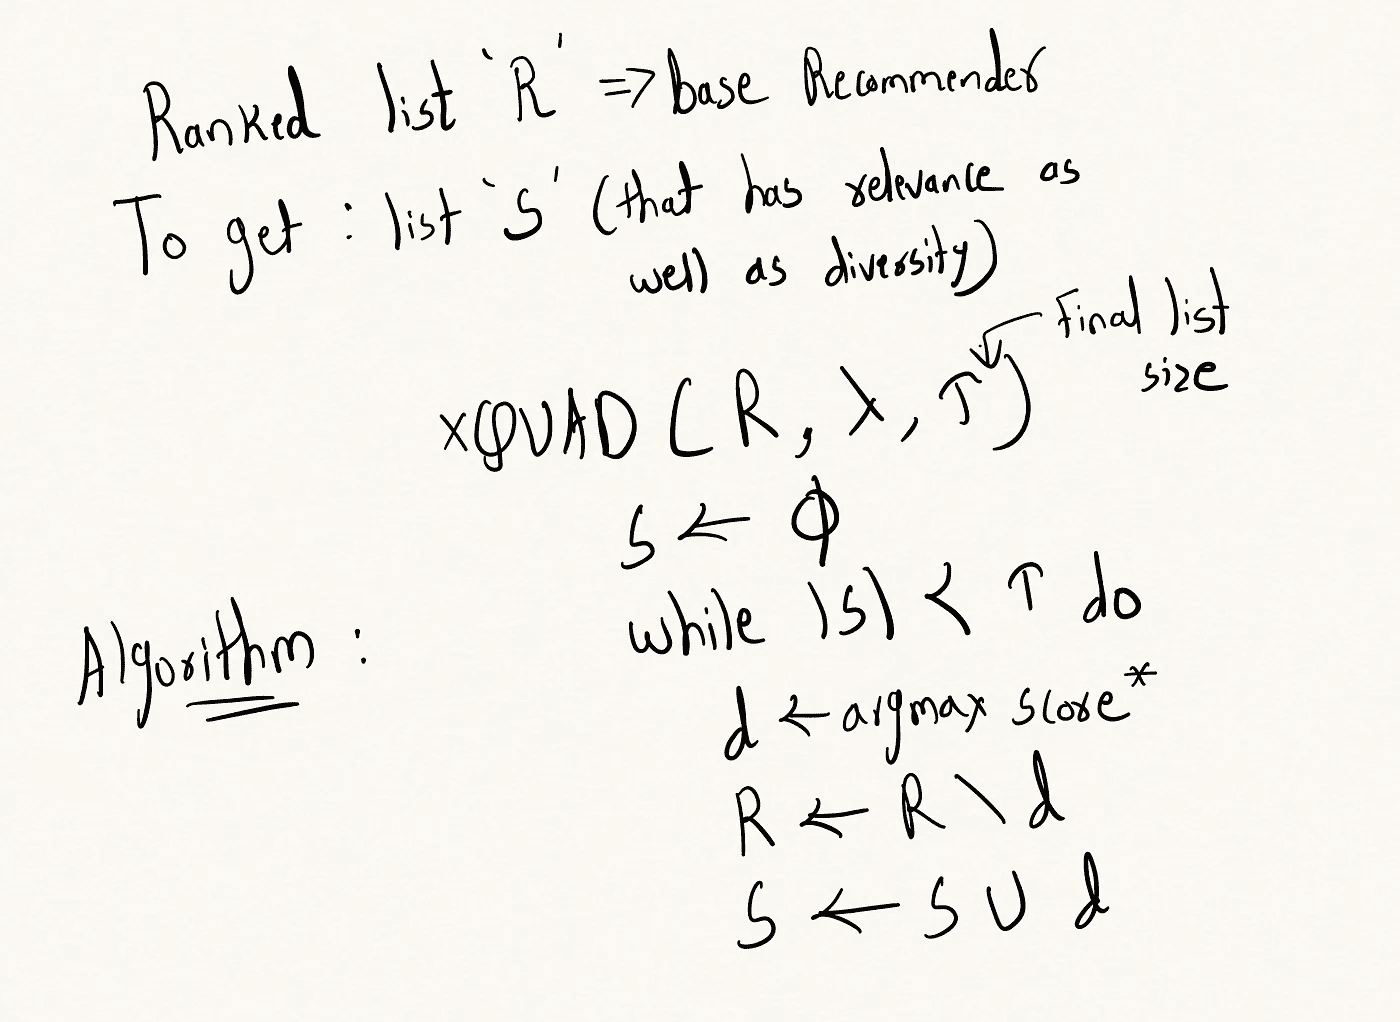 Ranked list 'R' => base Recommender
To get : list 'S' (that has relevance as
well as diversity)
Final list
size
xQUAD (R, λ, τ)
S ← φ
while |S| < τ do
Algorithm :
d ← argmax score*
R ← R \ d
S ← S ∪ d